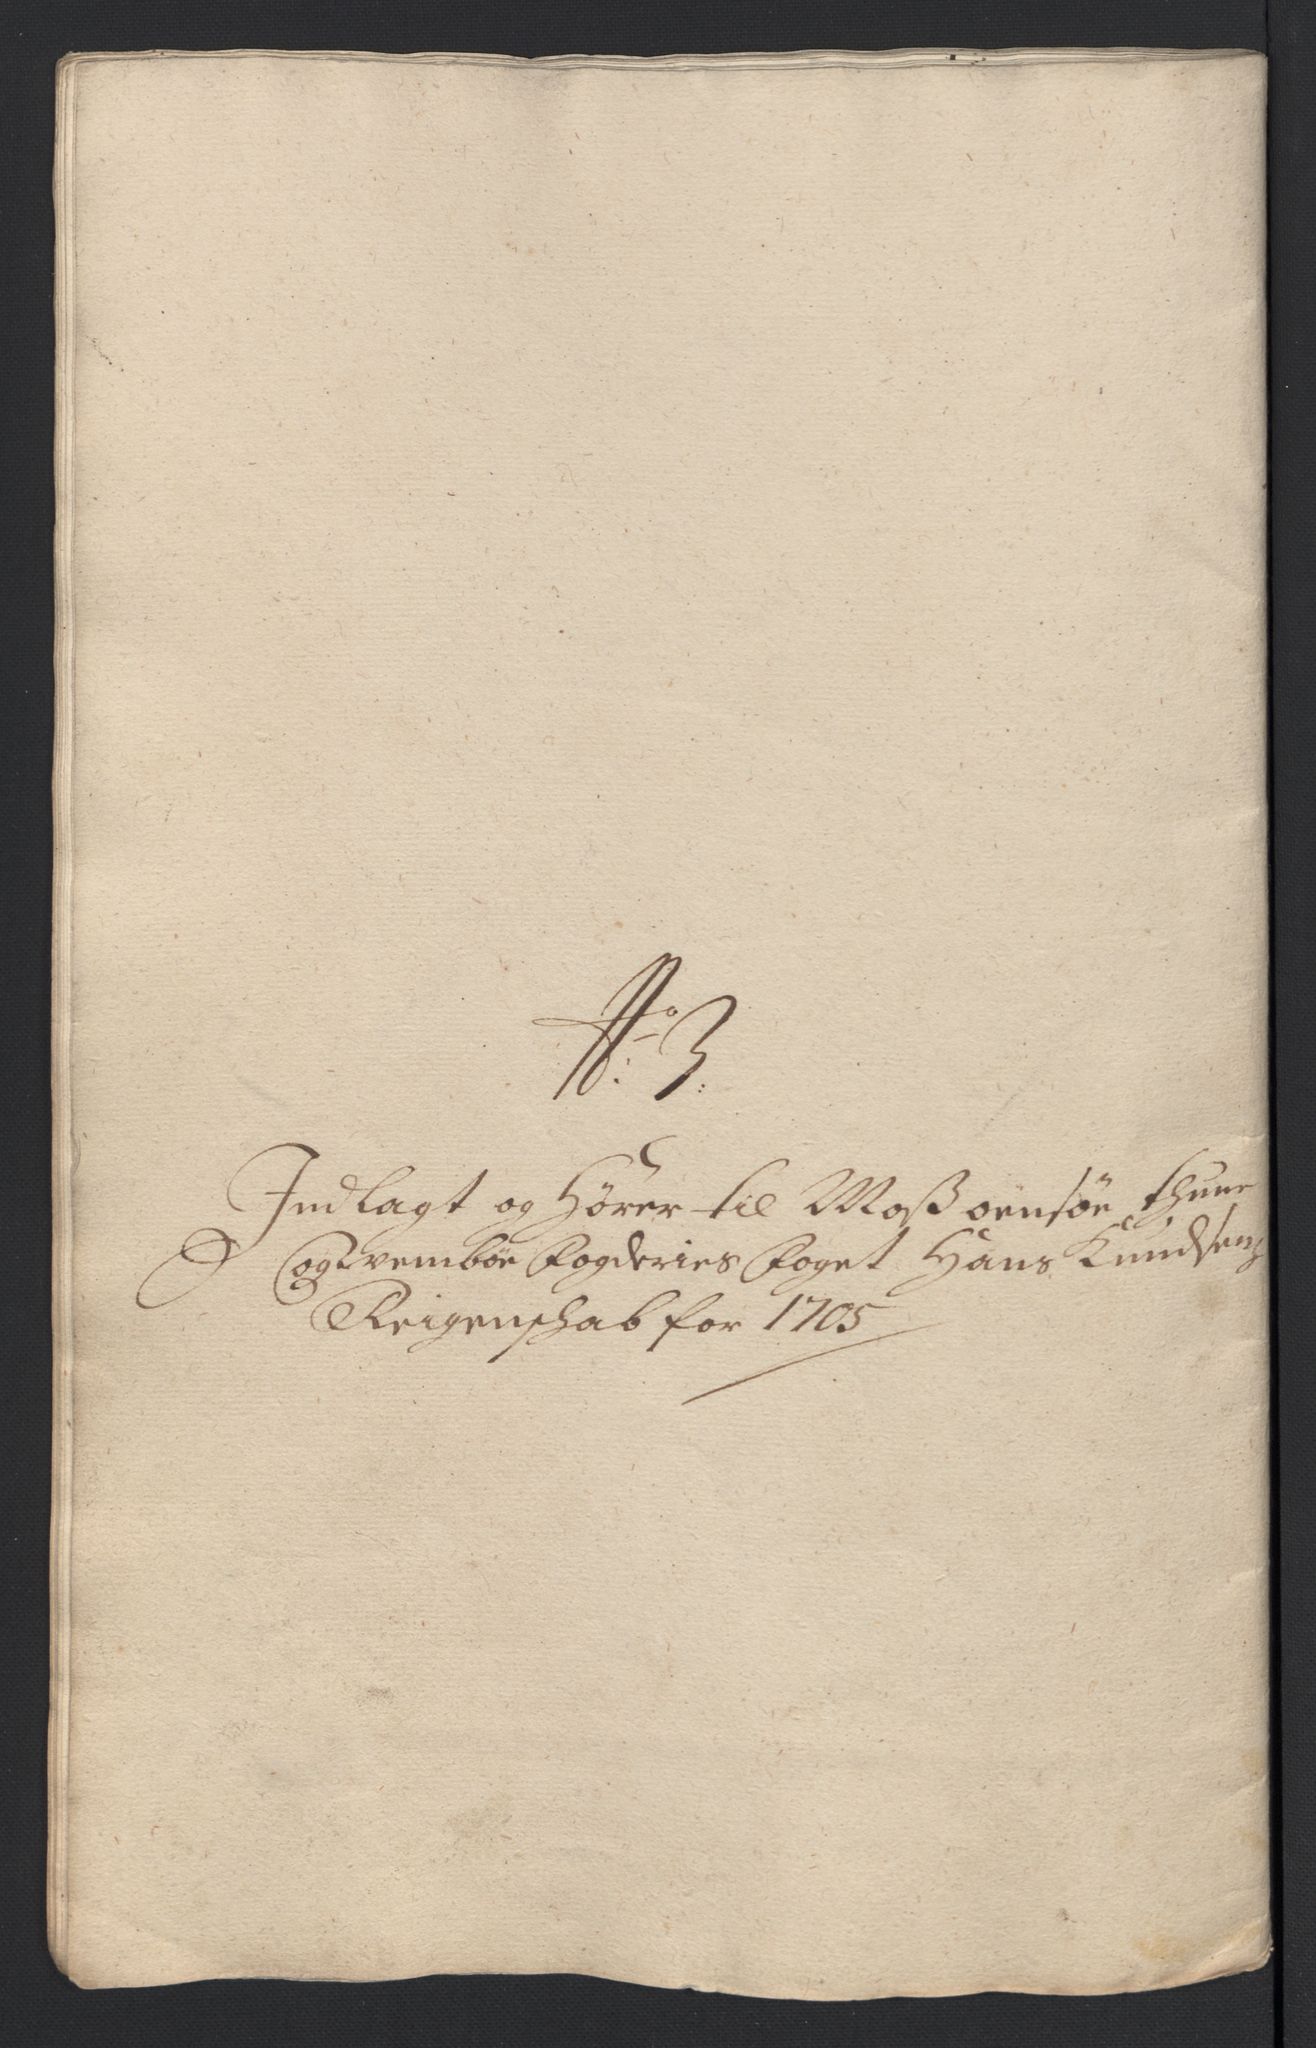 No. 3.
Indlagt og hörer til Moss oensöe thune
og Wemböe fogderies foget Hans Knudsens
Reigenschab for 1705